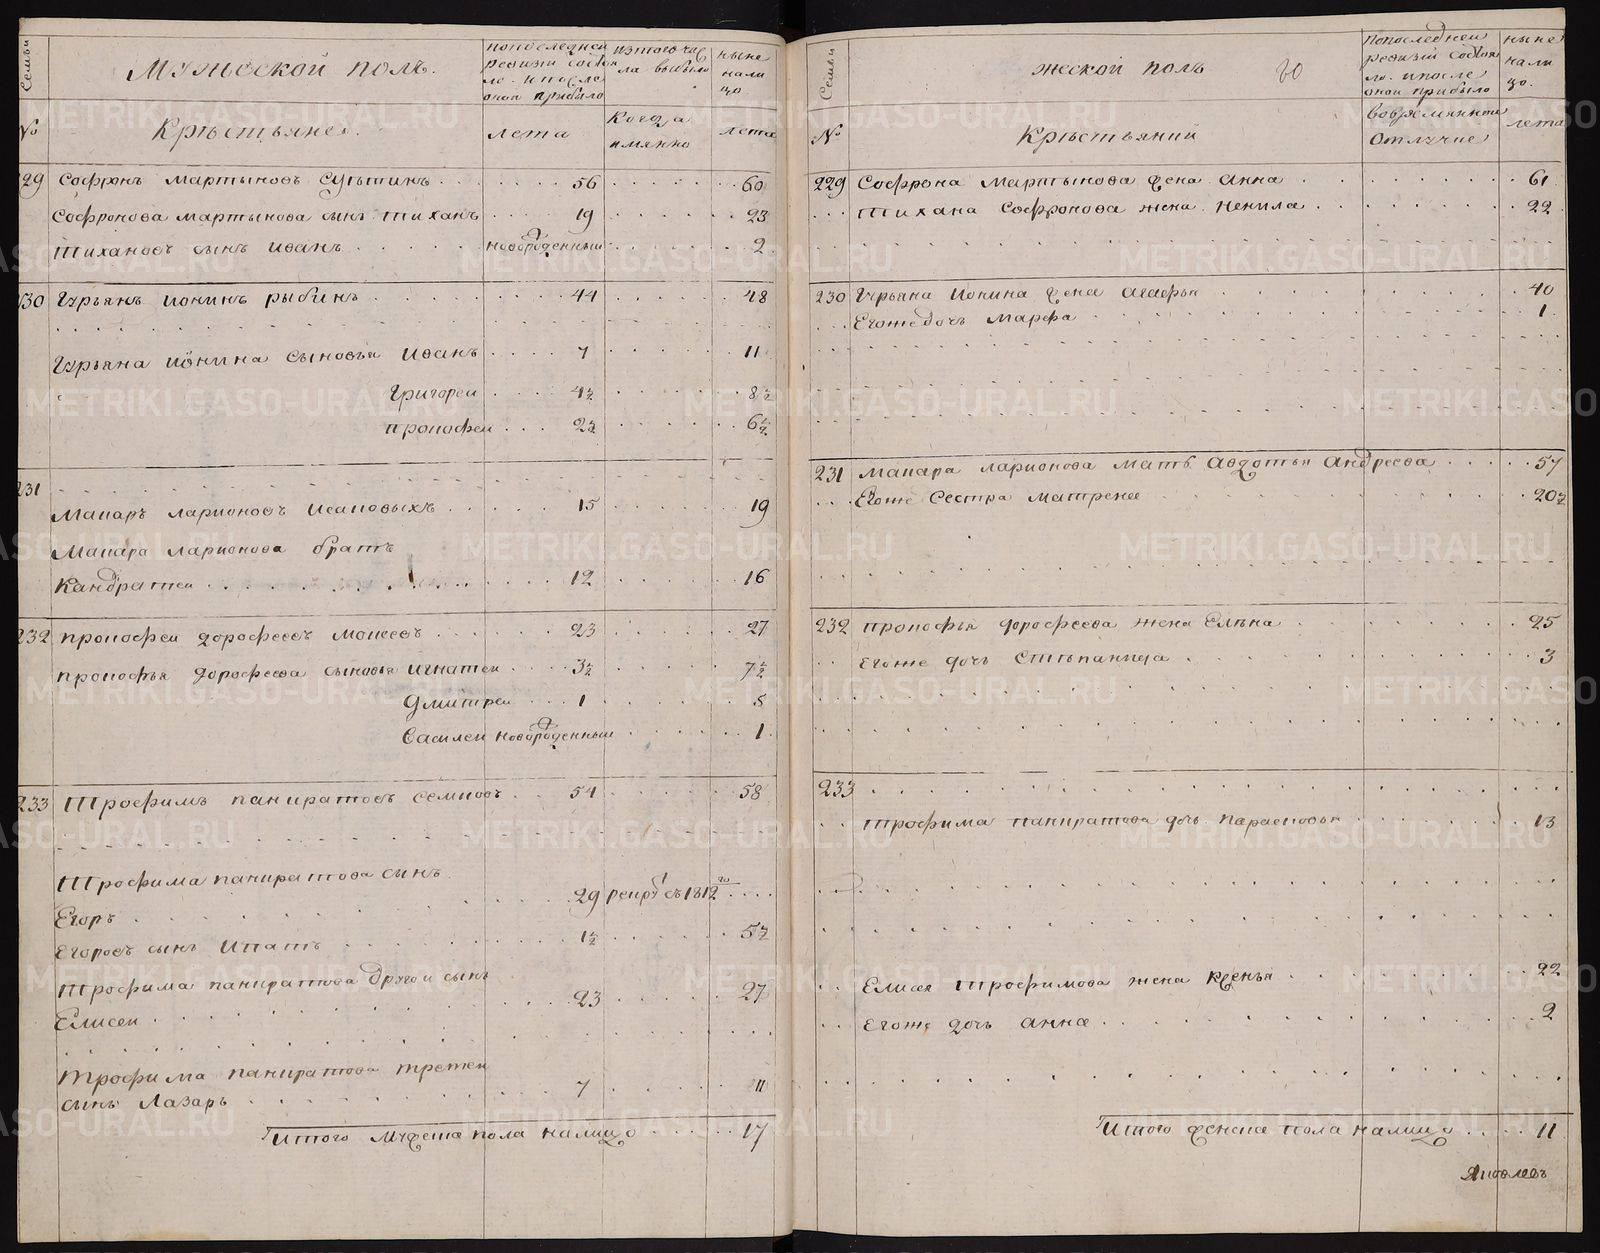 Семьи
Мужеской полъ.
по последней
ревизи состоя
ло и после
оной прибыло
изтого чис
ла выбыло
ныне
нали
цо
№
Крестьяне.
лета
Когда
имянно
лета
229 Софронъ Мартыновъ 56 60
Софронова Мартынова сынъ Тиханъ 19 23
Тихановъ сынъ Иванъ новорожденный 2
230 Гурьянъ Ионинъ рыбинъ 44 48
Гурьяна Ионина сыновья Иванъ 7 11
Григореи 4½ 8½
Прокофеи 2½ 6½
231
Макаръ Ларионовъ Исаковыхъ 15 19
Макара Ларионова братъ
Кандратеи 12 16
232 Прокофеи дорофеевъ Моисеевъ 23 27
Прокофья дорофеева сыновья Игнатеи 3½ 7½
Дмитреи 1 5
Василеи новорожденныи 1
233 Трофимъ панкратовъ семковъ 54 58
Трофима панкратова сынъ
Егоръ 29 рекрутъ съ 1812го
Егоровъ сынъ Ипатъ 1½ 5½
Трофима панкратова другои сынъ
Елисеи 23 27
Трофима панкратова третеи
сынъ Лазарь 7 11
Итого мужеска пола налицо 17
Семьи
жеской полъ 60
по последнеи
ревизи состоя
ло и после
онои прибыло
ныне
нали
цо.
№
Крестьянии
во времянной
отлучке
лета
229 Софрона Мартынова жена Анна 61
Тихана Софронова жена Ненила 22
230 Гурьяна Ионина жена Агафья 40
Егоже дочь Марфа 1
231 Макара Ларионова мать Авдотья Андреева 57
Егоже Сестра матрена 20½
232 Прокофья дорофеева жена Елена 25
Егоже дочь Степанида 3
233
Трофима панкратова дочь парасковья 13
Елисея Трофимова жена Ксенья 22
Егоже дочь Анна 2
Итого женска пола налицо 11
Яковлевъ
METRIKI.GASO-URAL.RU